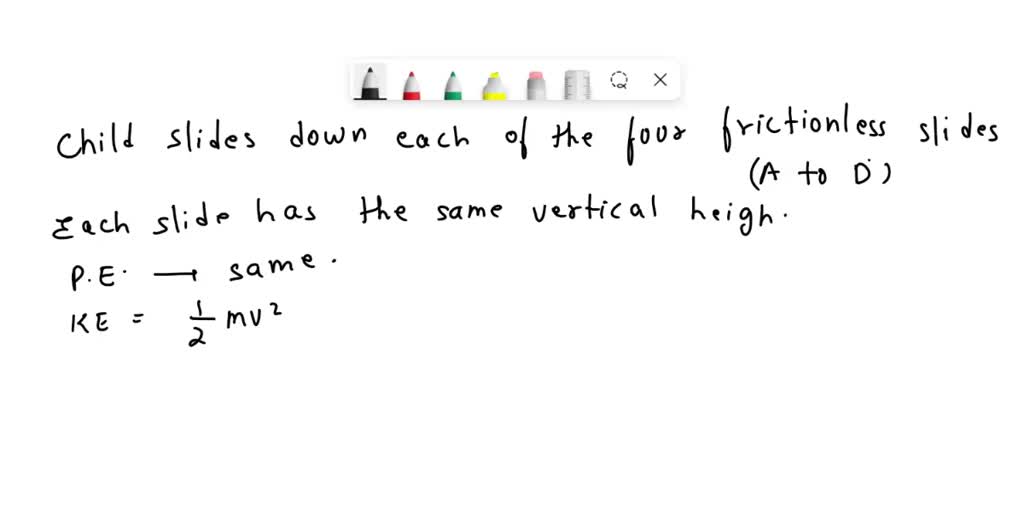 Child slides down each of the four frictionless slides
(A to D)
Each slide has the same vertical heigh.
P.E. → same.
KE = 1/2 mv²